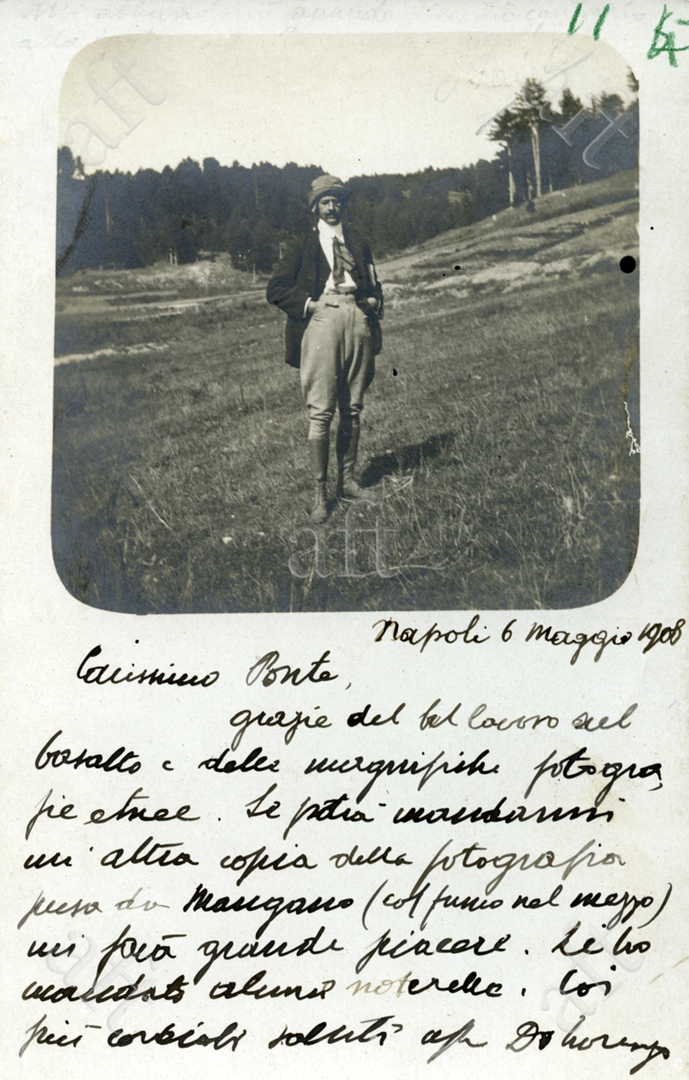 11
Napoli 6 Maggio 1908
Carissimo Ponte,
grazie del bel lavoro sul
basalto e delle magnifiche fotogra
fie etnee. Se potrà mandarmi
un' altra copia della fotografia
presa da Mangano (col fumo nel mezzo)
mi farà grande piacere. Le ho
mandato alcune noterelle. Coi
più cordiali saluti aff De Lorenzo
aft
aft
aft
aft
aft